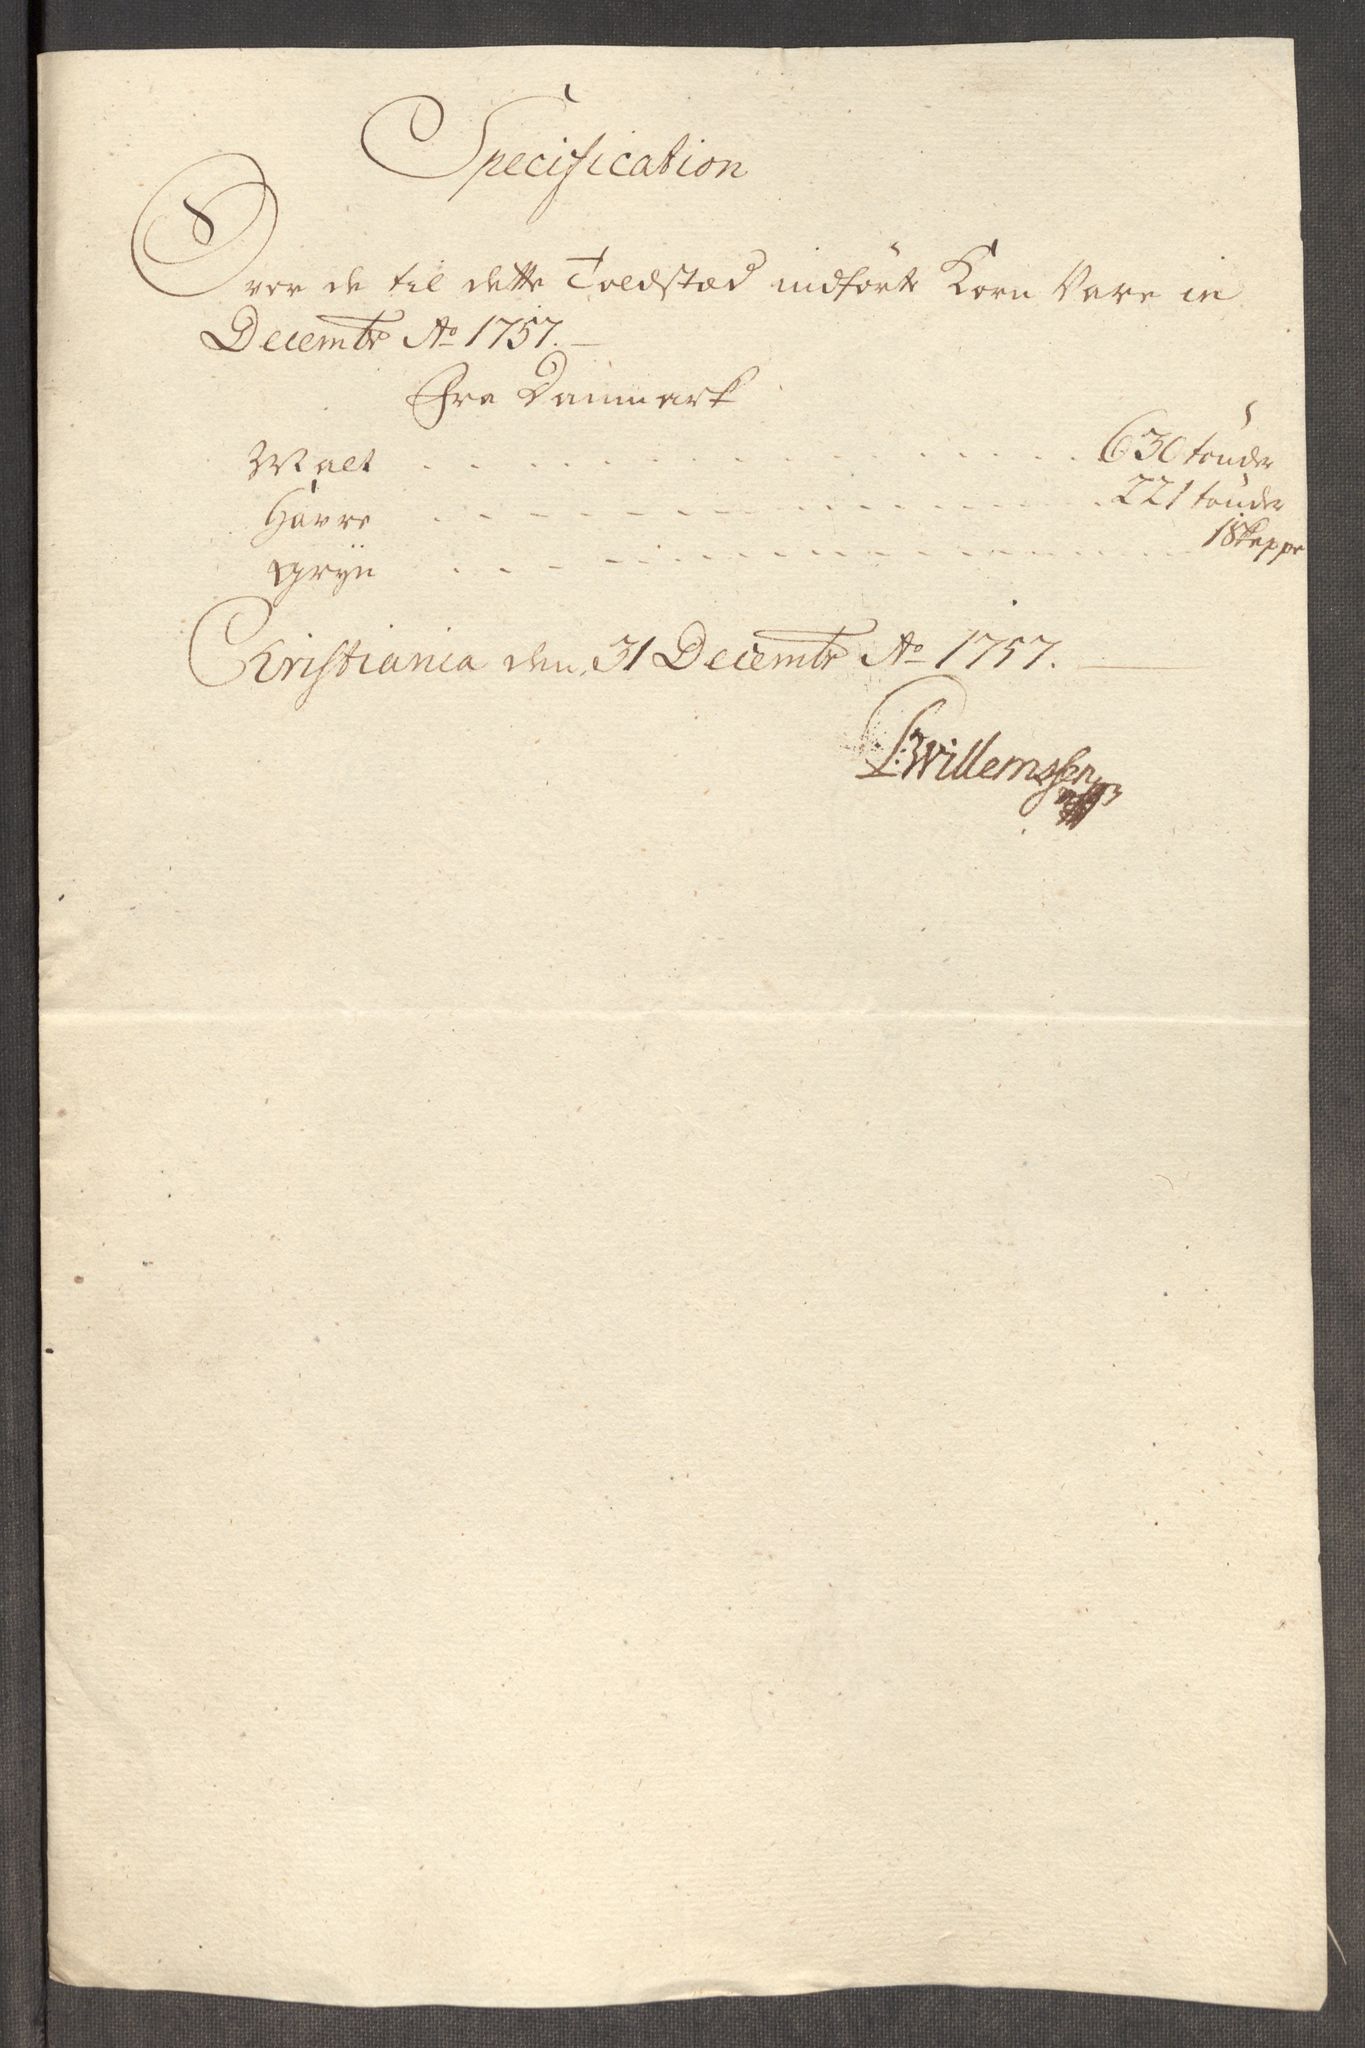 Specification
Over de til dette Toldstæd indförte Korn Vare in
Decembr Ao 1757.
Fra Danmark
Malt . . . . . . . . . . 630 tönder
Havre . . . . . . . . . . 221 tönder
Gryn . . . . . . . . . . 1 Skeppe
Christiania den 31 Decembr Ao 1757.
Willemssen